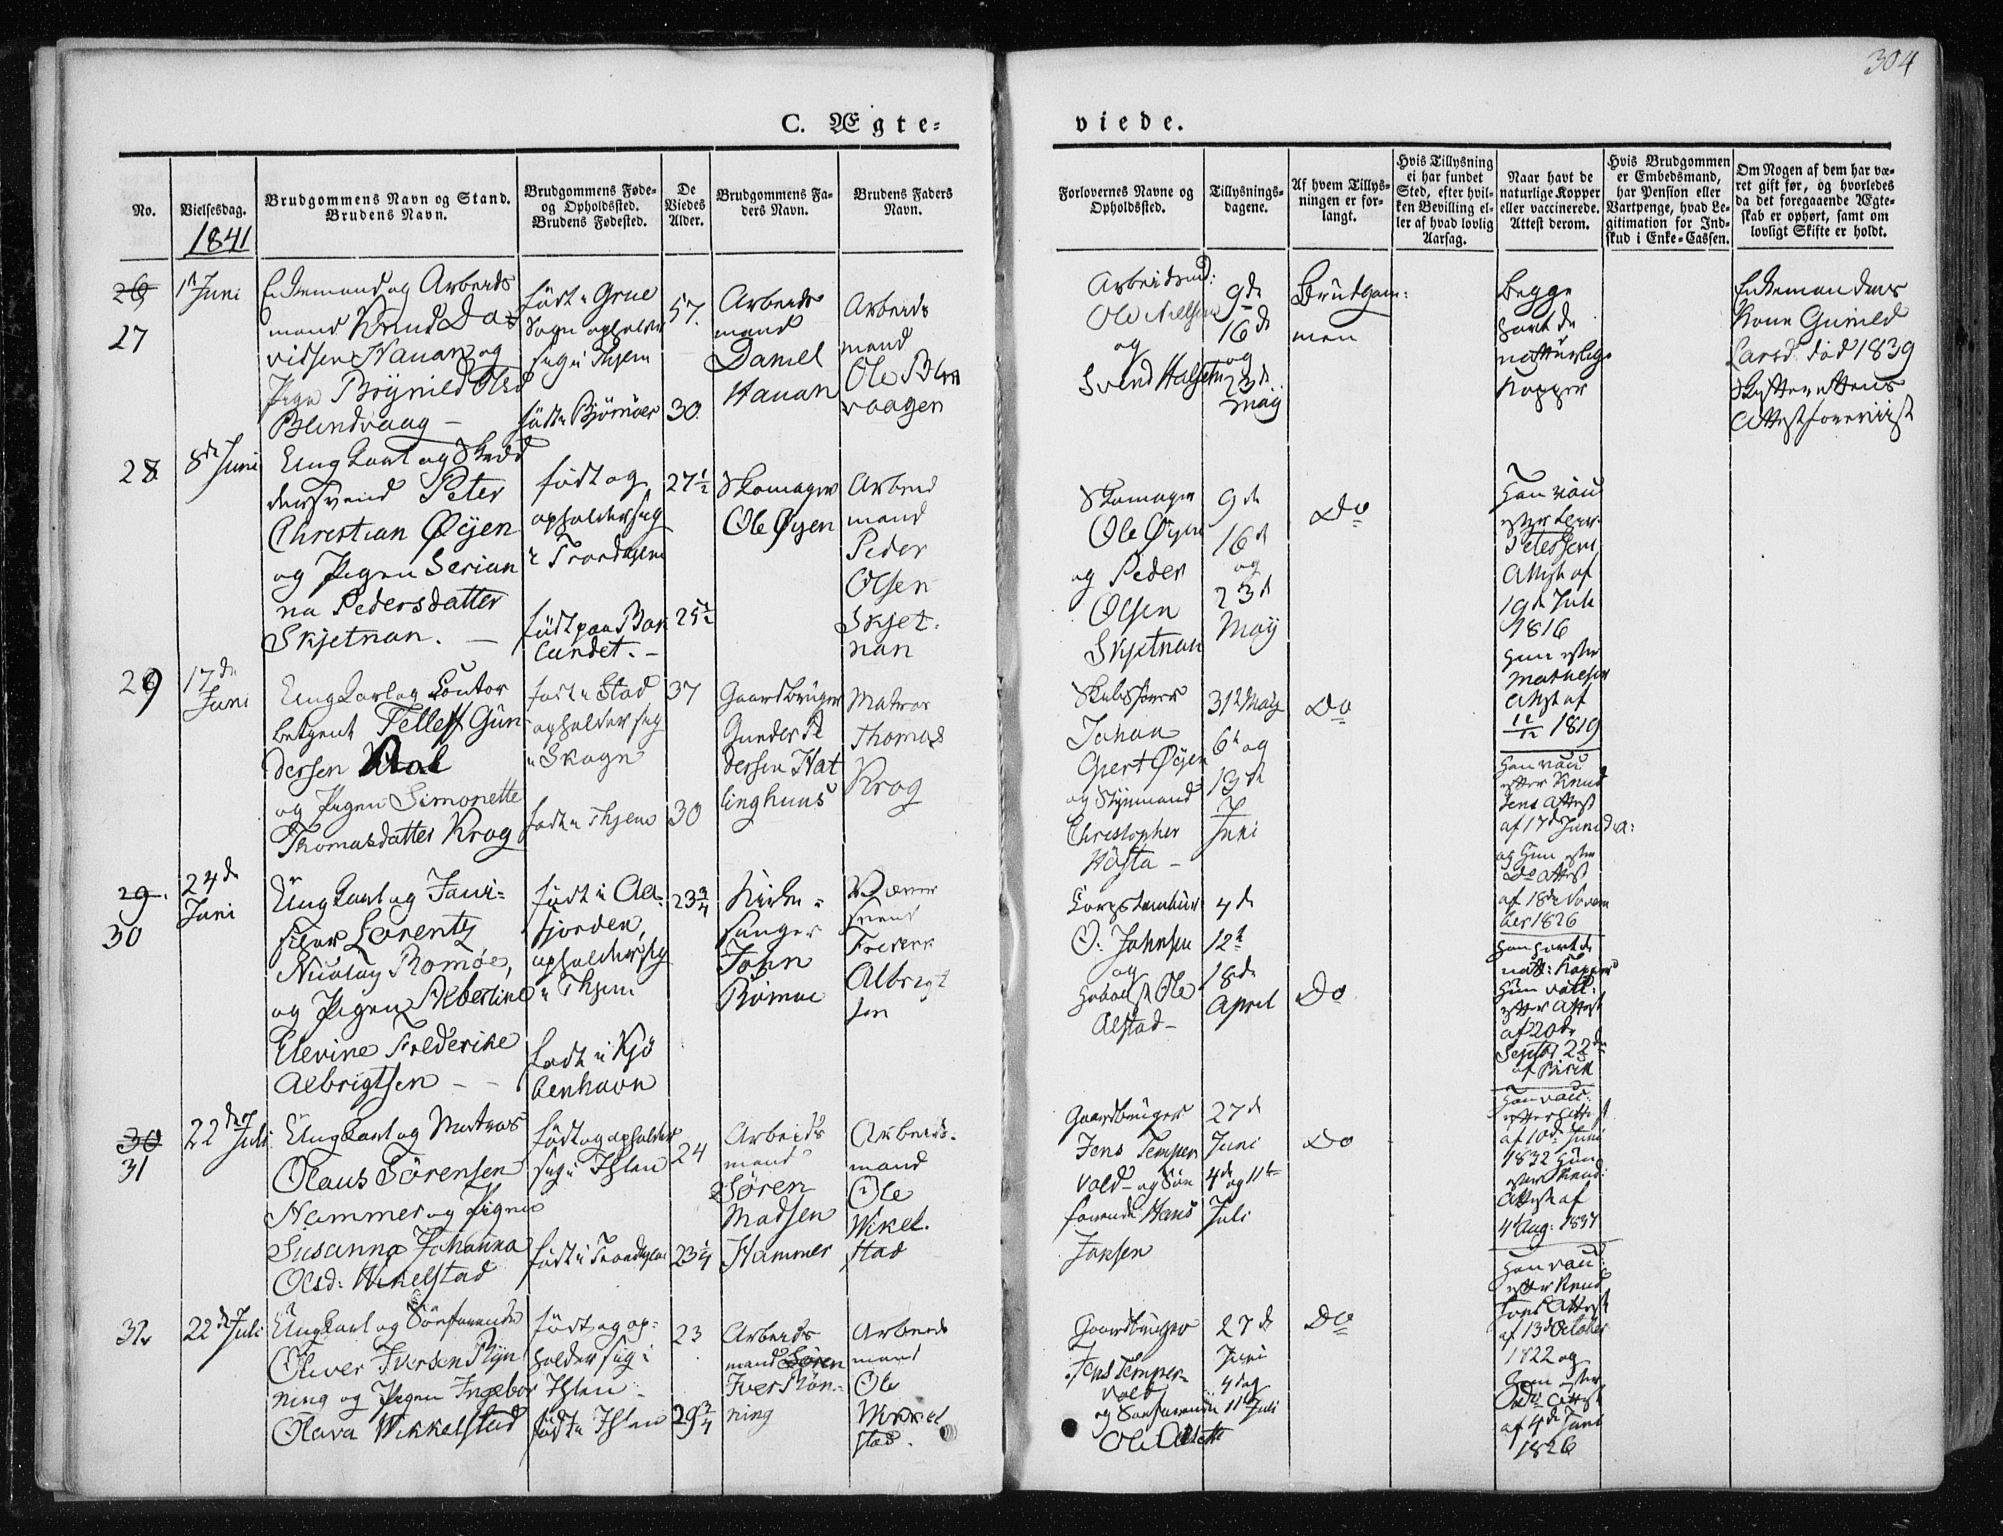 304
C. Ægte=
viede.
No.
Vielsesdag.
1841
Brudgommens Navn og Stand.
Brudens Navn.
Brudgommens Føde-
og Opholdssted.
Brudens Fødested.
De
Viedes
Alder.
Brudgommens Fa-
ders Navn.
Brudens Faders
Navn.
Forlovernes Navne og
Opholdssted.
Tillysnings-
dagene.
Af hvem Tillys-
ningen er for-
langt.
Hvis Tillysning
ei har fundet
Sted, efter hvil-
ken Bevilling el-
ler af hvad lovlig
Aarsag.
Naar havt de
naturlige Kopper
eller vaccinerede.
Attest derom.
Hvis Brudgommen
er Embedsmand,
har Pension eller
Vartpenge, hvad Le-
gitimation for Ind-
skud i Enke-Cassen.
Om Nogen af dem har væ-
ret gift før, og hvorledes
da det foregaaende Ægte-
skab er ophørt, samt om
lovligt Skifte er holdt.
26
27
1st Juni
Enkemand og Arbeids
mand Knud Da=
vidsen Hauan og
Pige Brynild Olsd
Blindvaag -
født i Grue
Sogn opholder
sig i Thjem
født i Bjørnøer
57.
30.
Arbeids
mand
Daniel
Hauan
Arbeids
mand
Ole Blin
vaagen
Arbeidsmd:
Ole Nielsen
og
Svend Halsetn
9de
16de
og
23de
Maij
Brudgom=
men
Begge
havt de
naturlige
Kopper
Enkemandens
Kone Gunild
Larsd. død 1839
Skifterettens
Attest foreviist
28
8de Juni
Ungkarl og Skræd
dersvend Peter
Christian Øyen
og Pigen Serian
na Pedersdatter
Skjetnan. -
født og
opholder sig
i Trondhjem
født paa Bak
landet. -
27 1/2
25 1/2
Skomager
Ole Øyen
Arbeid
mand
Peder
Olsen
Skjet-
nan
Skomager
Ole Øyen
og Peder
Olsen
Skjetnan
9de
16de
og
23de
Maij
Do
Han vacc
efter
Petersens
Attest af
19de Juli
1816
Hun efter
Attest af
1819
29
17de
Juni
Ungkarl og Contor
betjent Tellef Gun
dersen
og Pigen Simonette
Thomasdatter Krog
født i Stad
opholder sig
i Skogn
født i Thjem
37
30
Gaardbruger
Gunder Pe
dersen Hat
linghuus
Matros
Thomas
Krog
Johan
Gjert Øyen
og Styrmand
Christopher
Høsta -
31te May
6te og
13de
Juni
Do
Han vacc
efter Knud
Jens Attest
af 17de Juni d.a:
og Hun efter
Do Attest
af 18de Novem
ber 1826
29.
30
24de
Juni
Ungkarl og Javi-
Lorentz
Nicolay Romøe,
og Pigen Albertine
Elevine Frederike
Albrigtsen - -
født i Aa-
fjorden,
opholder sig
i Thjem
født i Kjø
benhavn
23 3/4
Kirke-
sanger
John
Romøe
Væver
svend
Frederik
Albrigt
sen
Corpstambur
O. Johnsen
og
Hoboist Ole
Alstad -
4de
12te
18de
April
Do
Han havt de
nat: Kopper
Hun vacc:
efter Attest
af 20de
Septbr
30
31
22de Juli
Ungkarl og Matros
Olaus Sörensen
Hammer og Pigen
Susanna Johanna
Olsd: Wikelstad
født og opholder
sig i Ihlen
født i Trondhjem
24
23 1/4
Arbeids
mand
Søren
Madsen
Hammer
Arbeids-
mand
Ole
Wikel-
stad
Gaardbruger
Jens Temper
vold - og Søe
farende Hans
Jensen
27de
Juni
4de og 11te
Juli
Do
Han vacc:
efter Attest
af 10de Juni
1832 Hun
efter
Attest af
4 Aug: 1837
32
22de Juli
Ungkarl og Søefarende
Oliver Iversen Røn
ning og Pigen Ingebor
Olava Wikkelstad
født og op=
holder sig i
Ihlen -
født i Ihlen
23
29 3/4
Arbeids
mand Søren
Iver Røn-
ning
Arbeids
mand
Ole
Wikkel
stad.
Gaardbruger
Jens Temper-
vold
og Søefarende
Ole
27de
Juni
4de og
11te Juli
Do
Han vacc:
efter Knud
Jens Attest
af 13de October
1822 og
Hun efter
Attest
af 4de Juni
1826